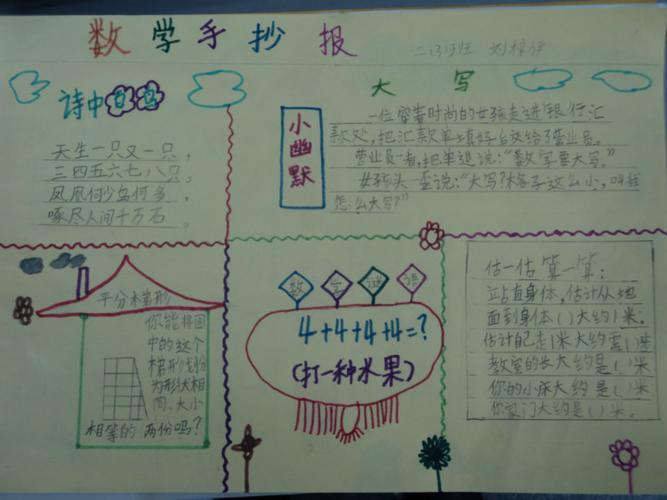 数学手抄报
二(3)班
诗中
天生一只又一只，
三四五六七八只，
凤凰何少鸟何多，
啄尽人间千万石
小幽默
大写
一位穿著时尚的女孩走进银行汇
款处，把汇款单填好后交给了营业员。
营业员一看，把单退说："数字要大写。"
女孩头一歪说："大写?格子这么小，叫我
怎么大写?"
平分梯形
你能将图
中的这个
梯形划份
为形状相
同、大小
相等的两份吗?
数字谜语
4+4+4+4=?
(打一种水果)
估一估 算一算：
立占直身体，估计从地
面到身体( )大约1米。
估计自己走1米大约需( )
教室的长大约是( )米
你的小床大约是( )米
你家门大约是( )米。